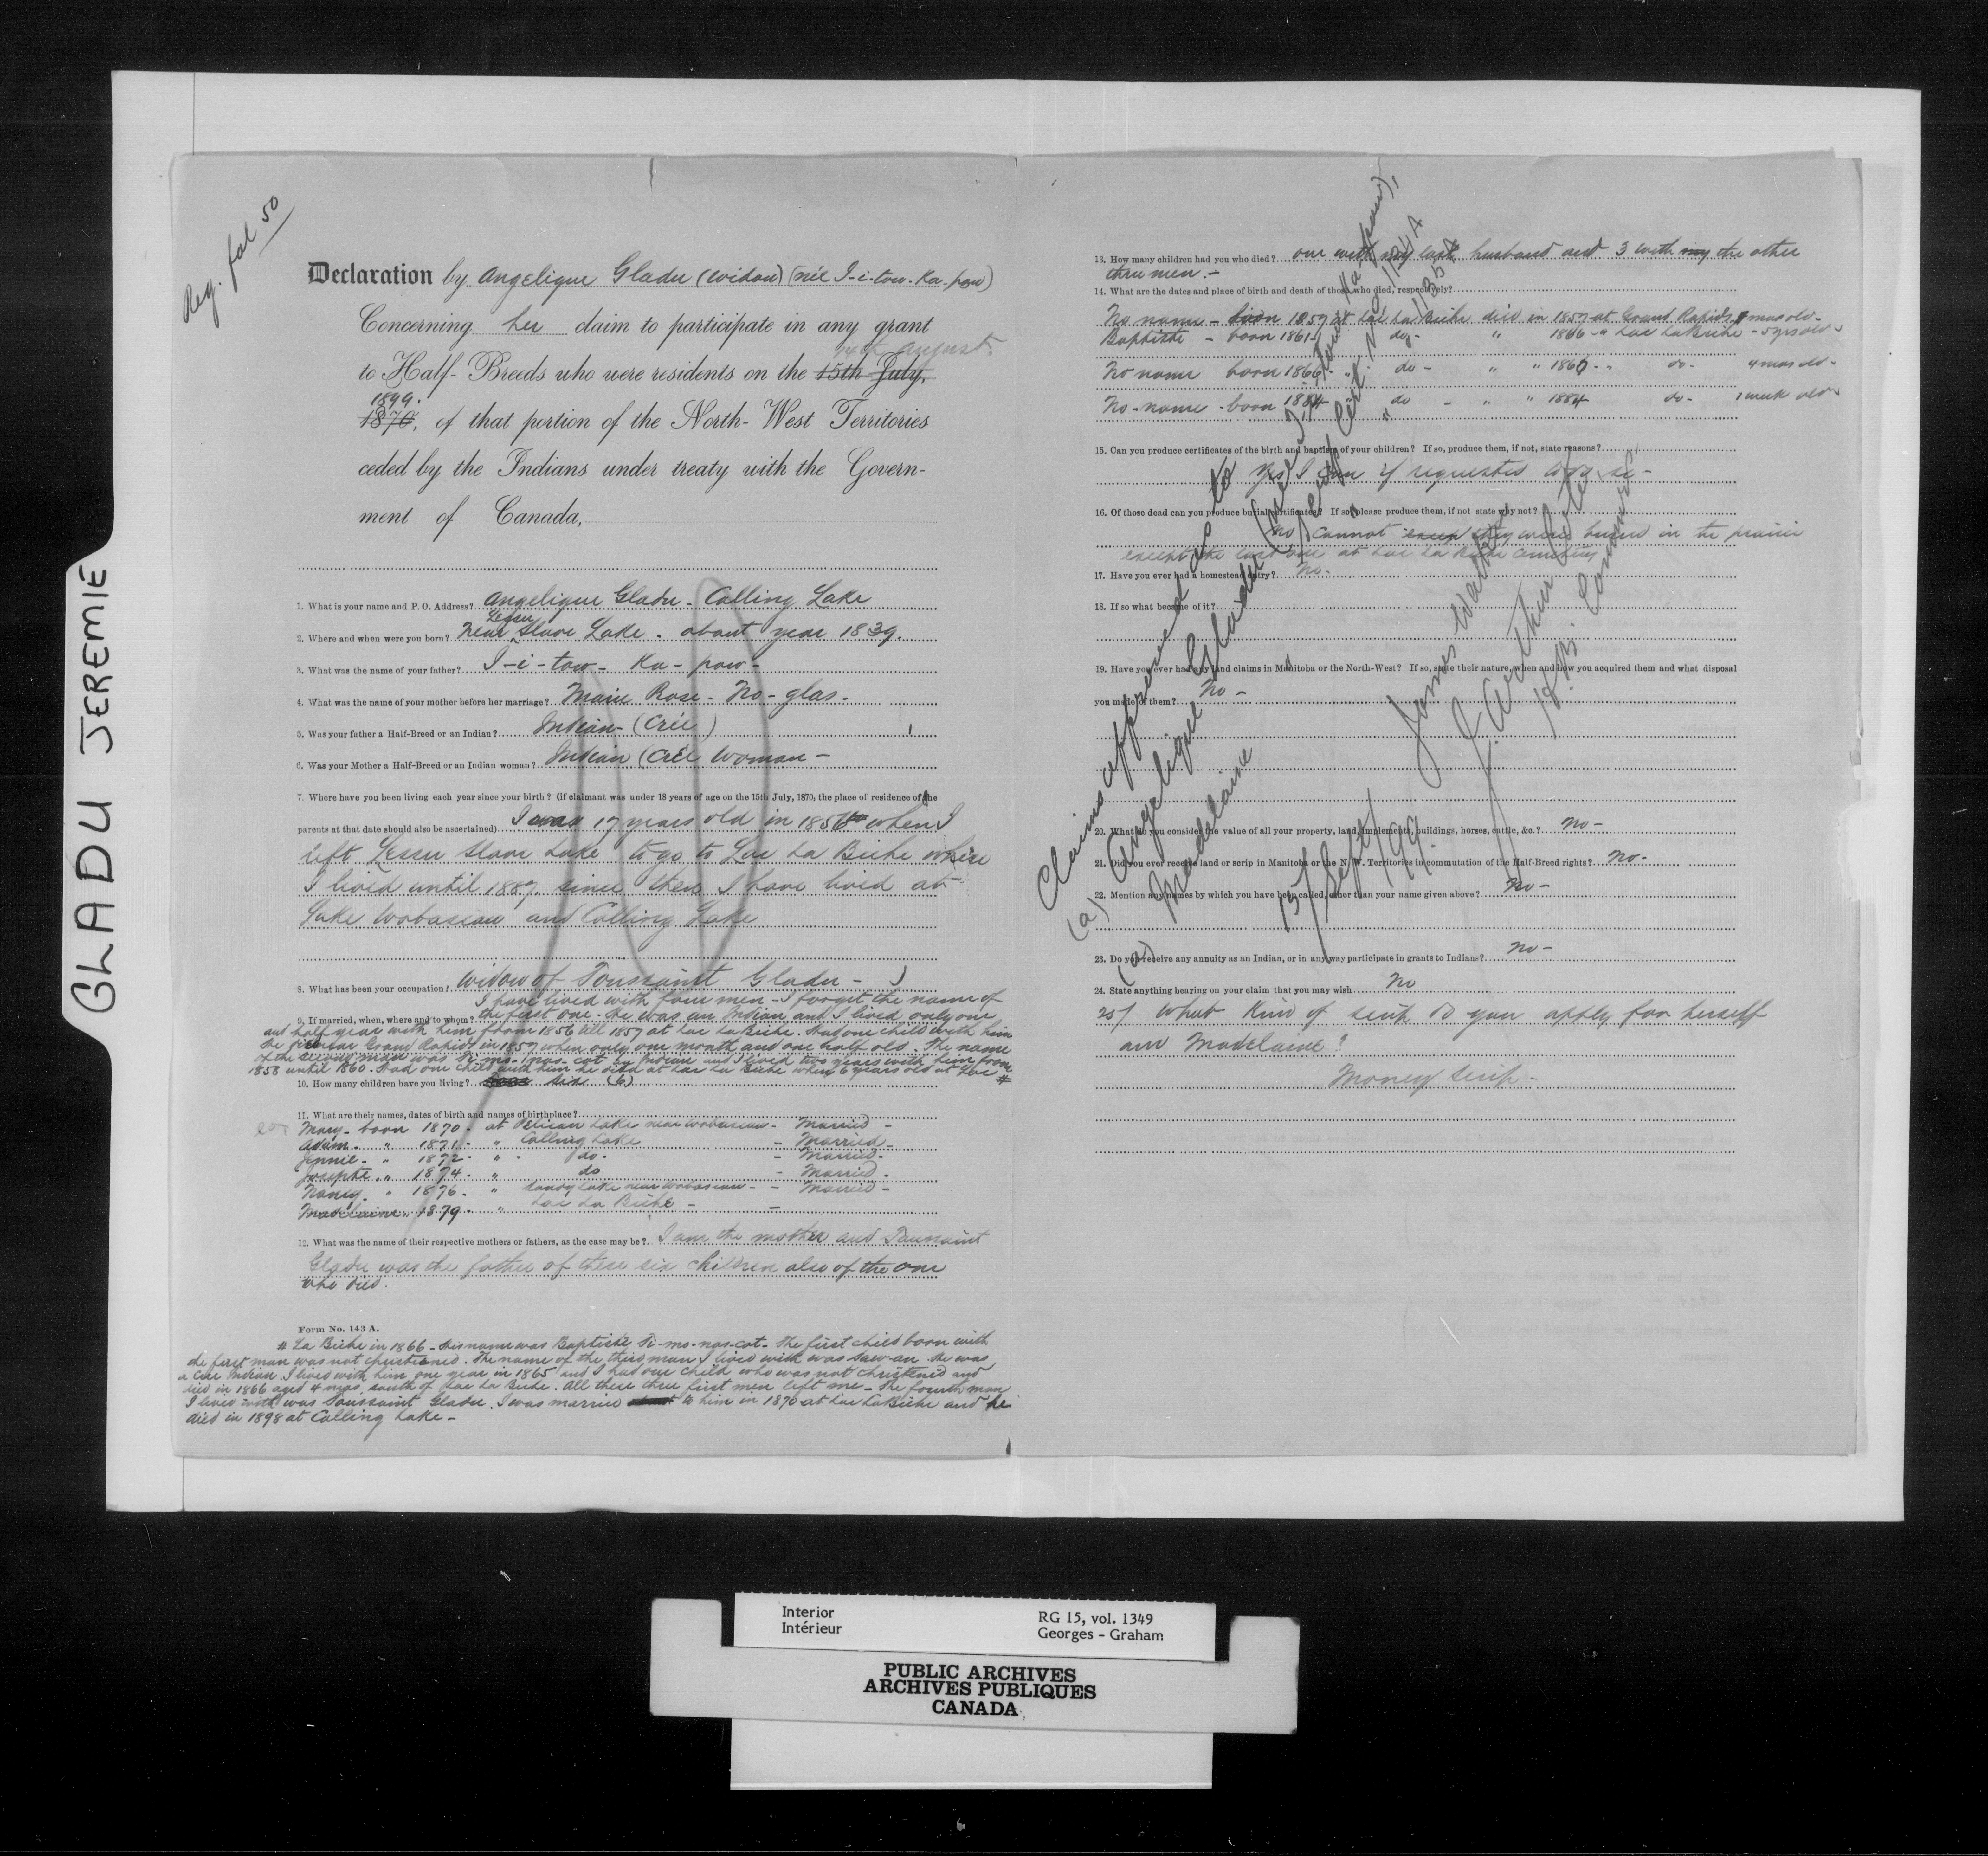 GLADU JEREMIE
Reg. fol 50
Declaration by Angelique Gladu (widow) (née I-i-tow-Ka-pow)
Concerning her claim to participate in any grant
14th August.
to Half-Breeds who were residents on the 15th July,
1899.
1870, of that portion of the North-West Territories
ceded by the Indians under treaty with the Govern-
ment of Canada,
1. What is your name and P. O. Address? Angelique Gladu - Calling Lake
Lesser
2. Where and when were you born? Near Slave Lake - about year 1839.
3. What was the name of your father? I-i-tow- Ka-pow-
4. What was the name of your mother before her marriage? Marie Rose - No-glas-
5. Was your father a Half-Breed or an Indian? Indian (Crée)
6. Was your Mother a Half-Breed or an Indian woman? Indian (Crée Woman -
7. Where have you been living each year since your birth? (if claimant was under 18 years of age on the 15th July, 1870, the place of residence of the
parents at that date should also be ascertained) I was 17 years old in 1856 when I
left Lesser Slave Lake to go to Lac La Biche where
I lived until 1887 since then I have lived at
Lake Wobascaw and Calling Lake
8. What has been your occupation? Widow of Toussaint Gladu -
I have lived with four men - I forget the name of
9. If married, when, where and to whom? the first one - He was an Indian and I lived only one
and half year with him from 1856 till 1857 at Lac La Biche. Had one child with him
He died near Grand Rapids in 1857 when only one month and one half old. The name
of the second man was Ti-ms-nas-cot an Indian and I lived two years with him from
1858 until 1860. Had one child with him he died at Lac La Biche when 6 years old at Lac #
10. How many children have you living? six (6)
11. What are their names, dates of birth and names of birthplace?
Mary - born 1870 - at Pelican Lake near Wobascaw - Married -
Adam - " 1871 - " Calling Lake - Married -
Jennie - " 1872 - " do - - Married -
Josephte " 1874 - " do - Married -
Nancy - " 1876 - " Sandy Lake near Wobascaw - - Married -
Madelaine " 1879 - " Lac La Biche - -
12. What was the name of their respective mothers or fathers, as the case may be? I am the mother and Toussaint
Gladu was the father of these six children also of the one
who died.
Form No. 143 A.
# La Biche in 1866 - his name was Baptiste Ti-ms-nas-cot - The first child born with
the first man was not christened. The name of the third man I lived with was Saw-an. He was
a Cree Indian. I lived with him one year in 1865 and I had one child who was not christened and
died in 1866 aged 4 mos. south of Lac La Biche. All these three first men left me - The fourth man
I lived with was Toussaint Gladu. I was married to him in 1870 at Lac La Biche and he
died in 1898 at Calling Lake -
13. How many children had you who died? one with my last husband and 3 with my the other
three men. -
14. What are the dates and place of birth and death of those who died, respectively?
No name - born 1857 at Lac La Biche died in 1857 at Grand Rapids mos old -
Baptiste - born 1861 " do - " 1866 - " Lac La Biche - 5 yrs old -
No name born 1866 - " do - " " 1866 - " do - 4 mos old -
No-name - born 1884 - " do - " " 1884 do - 1 week old -
15. Can you produce certificates of the birth and baptism of your children? If so, produce them, if not, state reasons?
Yes I can if requested to do so -
16. Of those dead can you produce burial certificates? If so, please produce them, if not state why not?
No cannot they were buried in the prairie
except the last one at Lac La Biche cemetery
17. Have you ever had a homestead entry? No.
18. If so what became of it?
19. Have you ever had any land claims in Manitoba or the North-West? If so, state their nature, when and how you acquired them and what disposal
you made of them? No -
20. What do you consider the value of all your property, land, implements, buildings, horses, cattle, &c.? No -
21. Did you ever receive land or scrip in Manitoba or the N. W. Territories in commutation of the Half-Breed rights? No.
22. Mention any names by which you have been called, other than your name given above? No -
23. Do you receive any annuity as an Indian, or in any way participate in grants to Indians? No -
24. State anything bearing on your claim that you may wish No
25/ What kind of scrip do you apply for herself
and Madelaine?
Money scrip -
Claims approved as to
(a) Angelique Gladu (née I-i-tow-Ka-pow),
Scrip Cert. No 1134 A
(a) Madelaine " " 1135 A
15/Sept/99.
James Walker
J. Arthur Coté
H. B. Comm'rs
Interior
Intérieur
RG 15, vol. 1349
Georges - Graham
PUBLIC ARCHIVES
ARCHIVES PUBLIQUES
CANADA